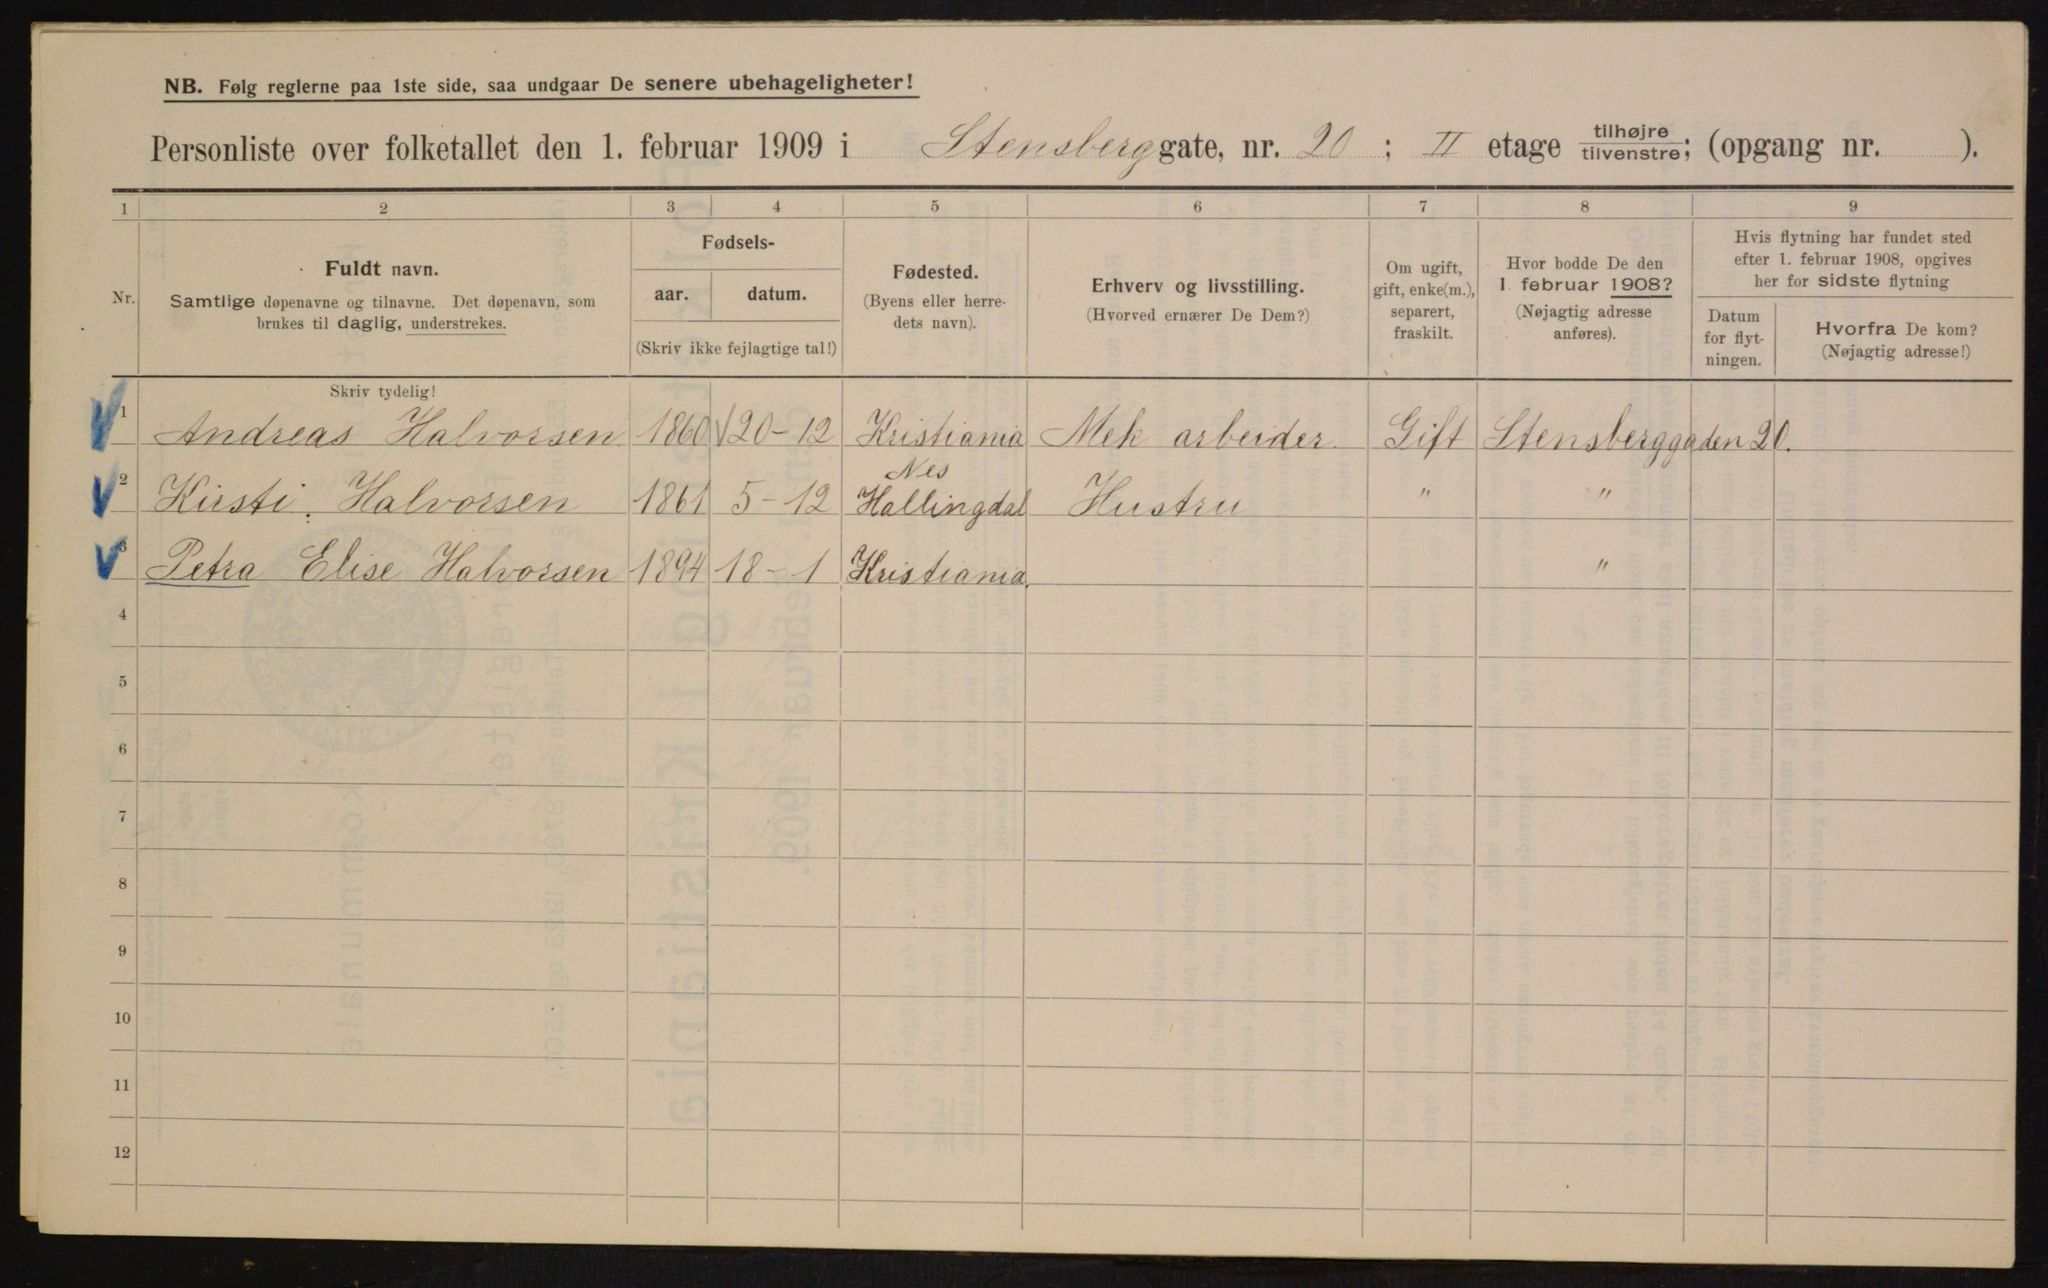 NB. Følg reglerne paa 1ste side, saa undgaar De senere ubehageligheter!
Personliste over folketallet den 1. februar 1909 i Stensberggate, nr. 20; II etage tilhøjre/tilvenstre; (opgang nr. ).
1 2 3 4 5 6 7 8 9
Nr.
Fuldt navn.
Samtlige døpenavne og tilnavne. Det døpenavn, som
brukes til daglig, understrekes.
Fødsels-
aar. datum.
(Skriv ikke fejlagtige tal!)
Fødested.
(Byens eller herre-
dets navn).
Erhverv og livsstilling.
(Hvorved ernærer De Dem?)
Om ugift,
gift, enke(m.),
separert,
fraskilt.
Hvor bodde De den
1 februar 1908?
(Nøjagtig adresse
anføres).
Hvis flytning har fundet sted
efter 1. februar 1908, opgives
her for sidste flytning
Datum
for flyt-
ningen.
Hvorfra De kom?
(Nøjagtig adresse!)
Skriv tydelig!
1 Andreas Halvorsen 1860 20-12 Kristiania Mek arbeider Gift Stensberggaden 20.
2 Kirsti Halvorsen 1861 5-12 Nes Hallingdal Hustru " "
3 Petra Elise Halvorsen 1894 18-1 Kristiania. "
4
5
6
7
8
9
10
11
12